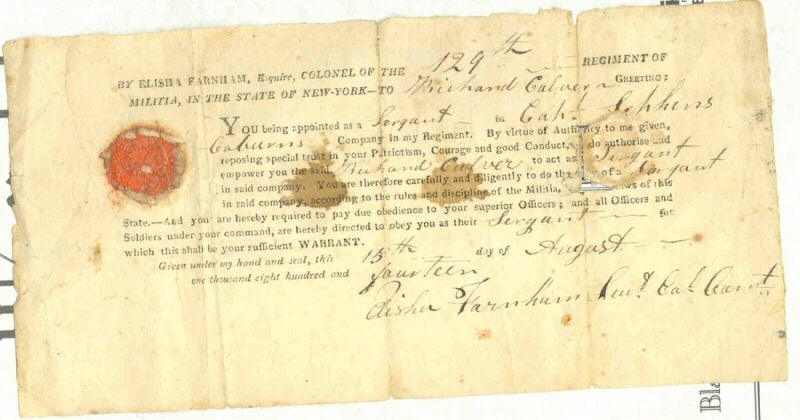 129th
BY ELISHA FARNHAM, Esquire, COLONEL OF THE REGIMENT OF
MILITIA, IN THE STATE OF NEW-YORK—TO Richard Calver GREETING:
YOU being appointed as a Sergant in Capt. Sephens
Coburns Company in my Regiment. By virtue of Authority to me given,
reposing special trust in your Patrictism, Courage and good Conduct, do authorise and
empower you the said Richard Culver to act as Sergant
in said company. You are therefore carefully and diligently to do the of a Sergant
in said company, according to the rules and discipline of the Militia, of this
State.—And you are hereby required to pay due obedience to your superior Officers; and all Officers and
Soldiers under your command, are hereby directed to obey you as their Sergant for
which this shall be your sufficient WARRANT.
Given under my hand and seal, this 15th day of August
one thousand eight hundred and fourteen
Elisha Farnham Leut. Col. Comt
Bla